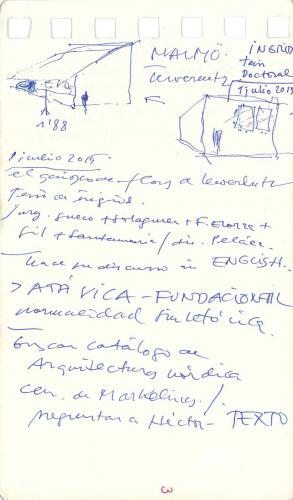 MALMÖ.
INGRID
Tesis
Doctoral
1 julio 2015
Lewerentz
1'88
1 julio 2015
el quiosco de flores de Lewerentz
Tesis de Ingrid.
sueco + + F. +
Gil + Santamaria / dir.
hace su discurso in ENGLISH.
> ATÁVICA - FUNDACIONAL
normalidad
Buscar catálogo de
Arquitectura nórdica
cen. de Markelius. /
preguntar a Héctor - TEXTO
3